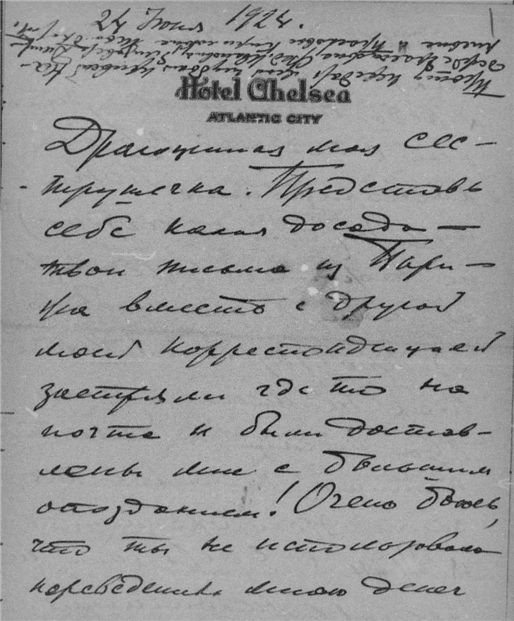 1924.
Hotel Chelsea
ATLANTIC CITY
Драгоценная моя сес-
трушечка. Представь
себе какая досада —
твои письма из Пари-
жа вместе с другой
моей корреспонденцией
застряли где то на
почте и были достав-
лены мне с большим
опозданием! Очень боюсь,
что ты не использовала
переведенных мною денег